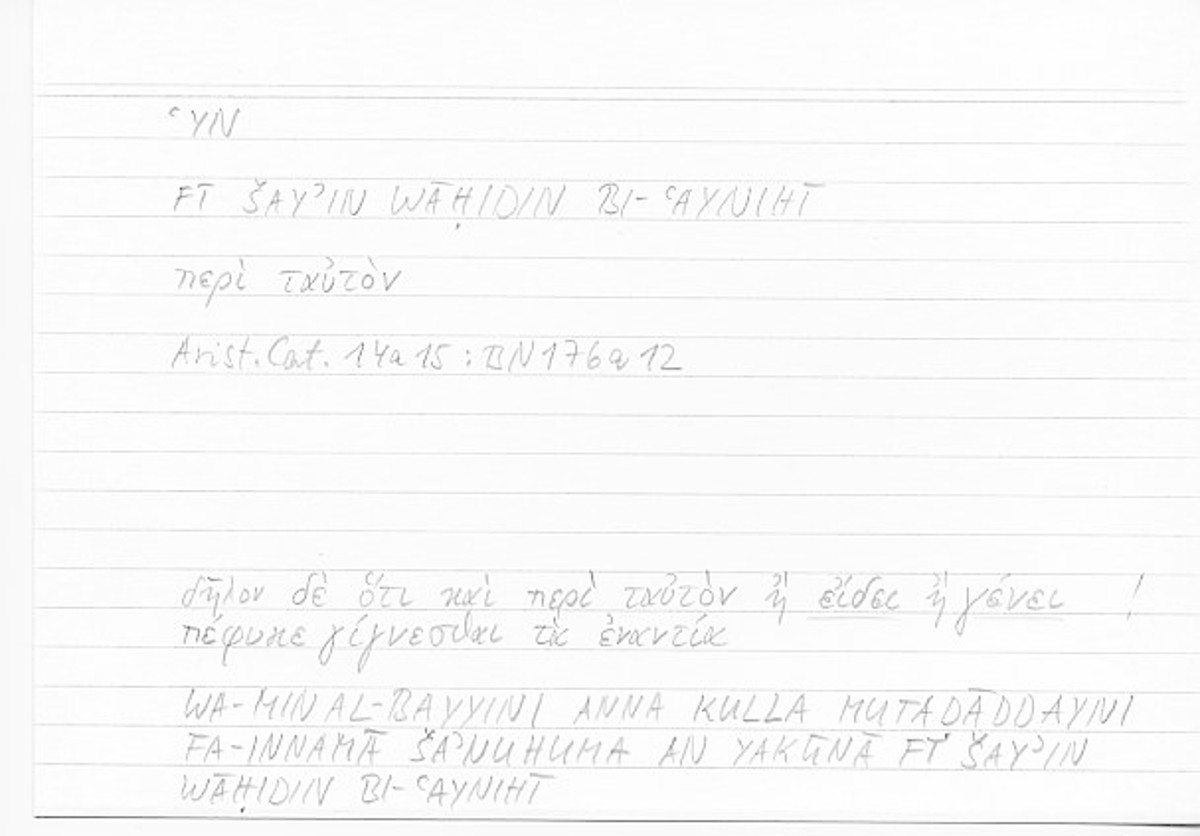 ʿYN
FĪ ŠAYʾIN WĀḤIDIN BI-ʿAYNIHĪ
περὶ ταὐτὸν
Arist. Cat. 14a15 : BN 176a12
δῆλον δὲ ὅτι καὶ περὶ ταὐτὸν ἢ εἴδει ἢ γένει !
πέφυκε γίγνεσθαι τὰ ἐναντία
WA-MIN AL-BAYYINI ANNA KULLA MUTADĀDDAYNI
FA-INNAMĀ ŠAʾNUHUMA AN YAKŪNĀ FĪ ŠAYʾIN
WĀḤIDIN BI-ʿAYNIHĪ